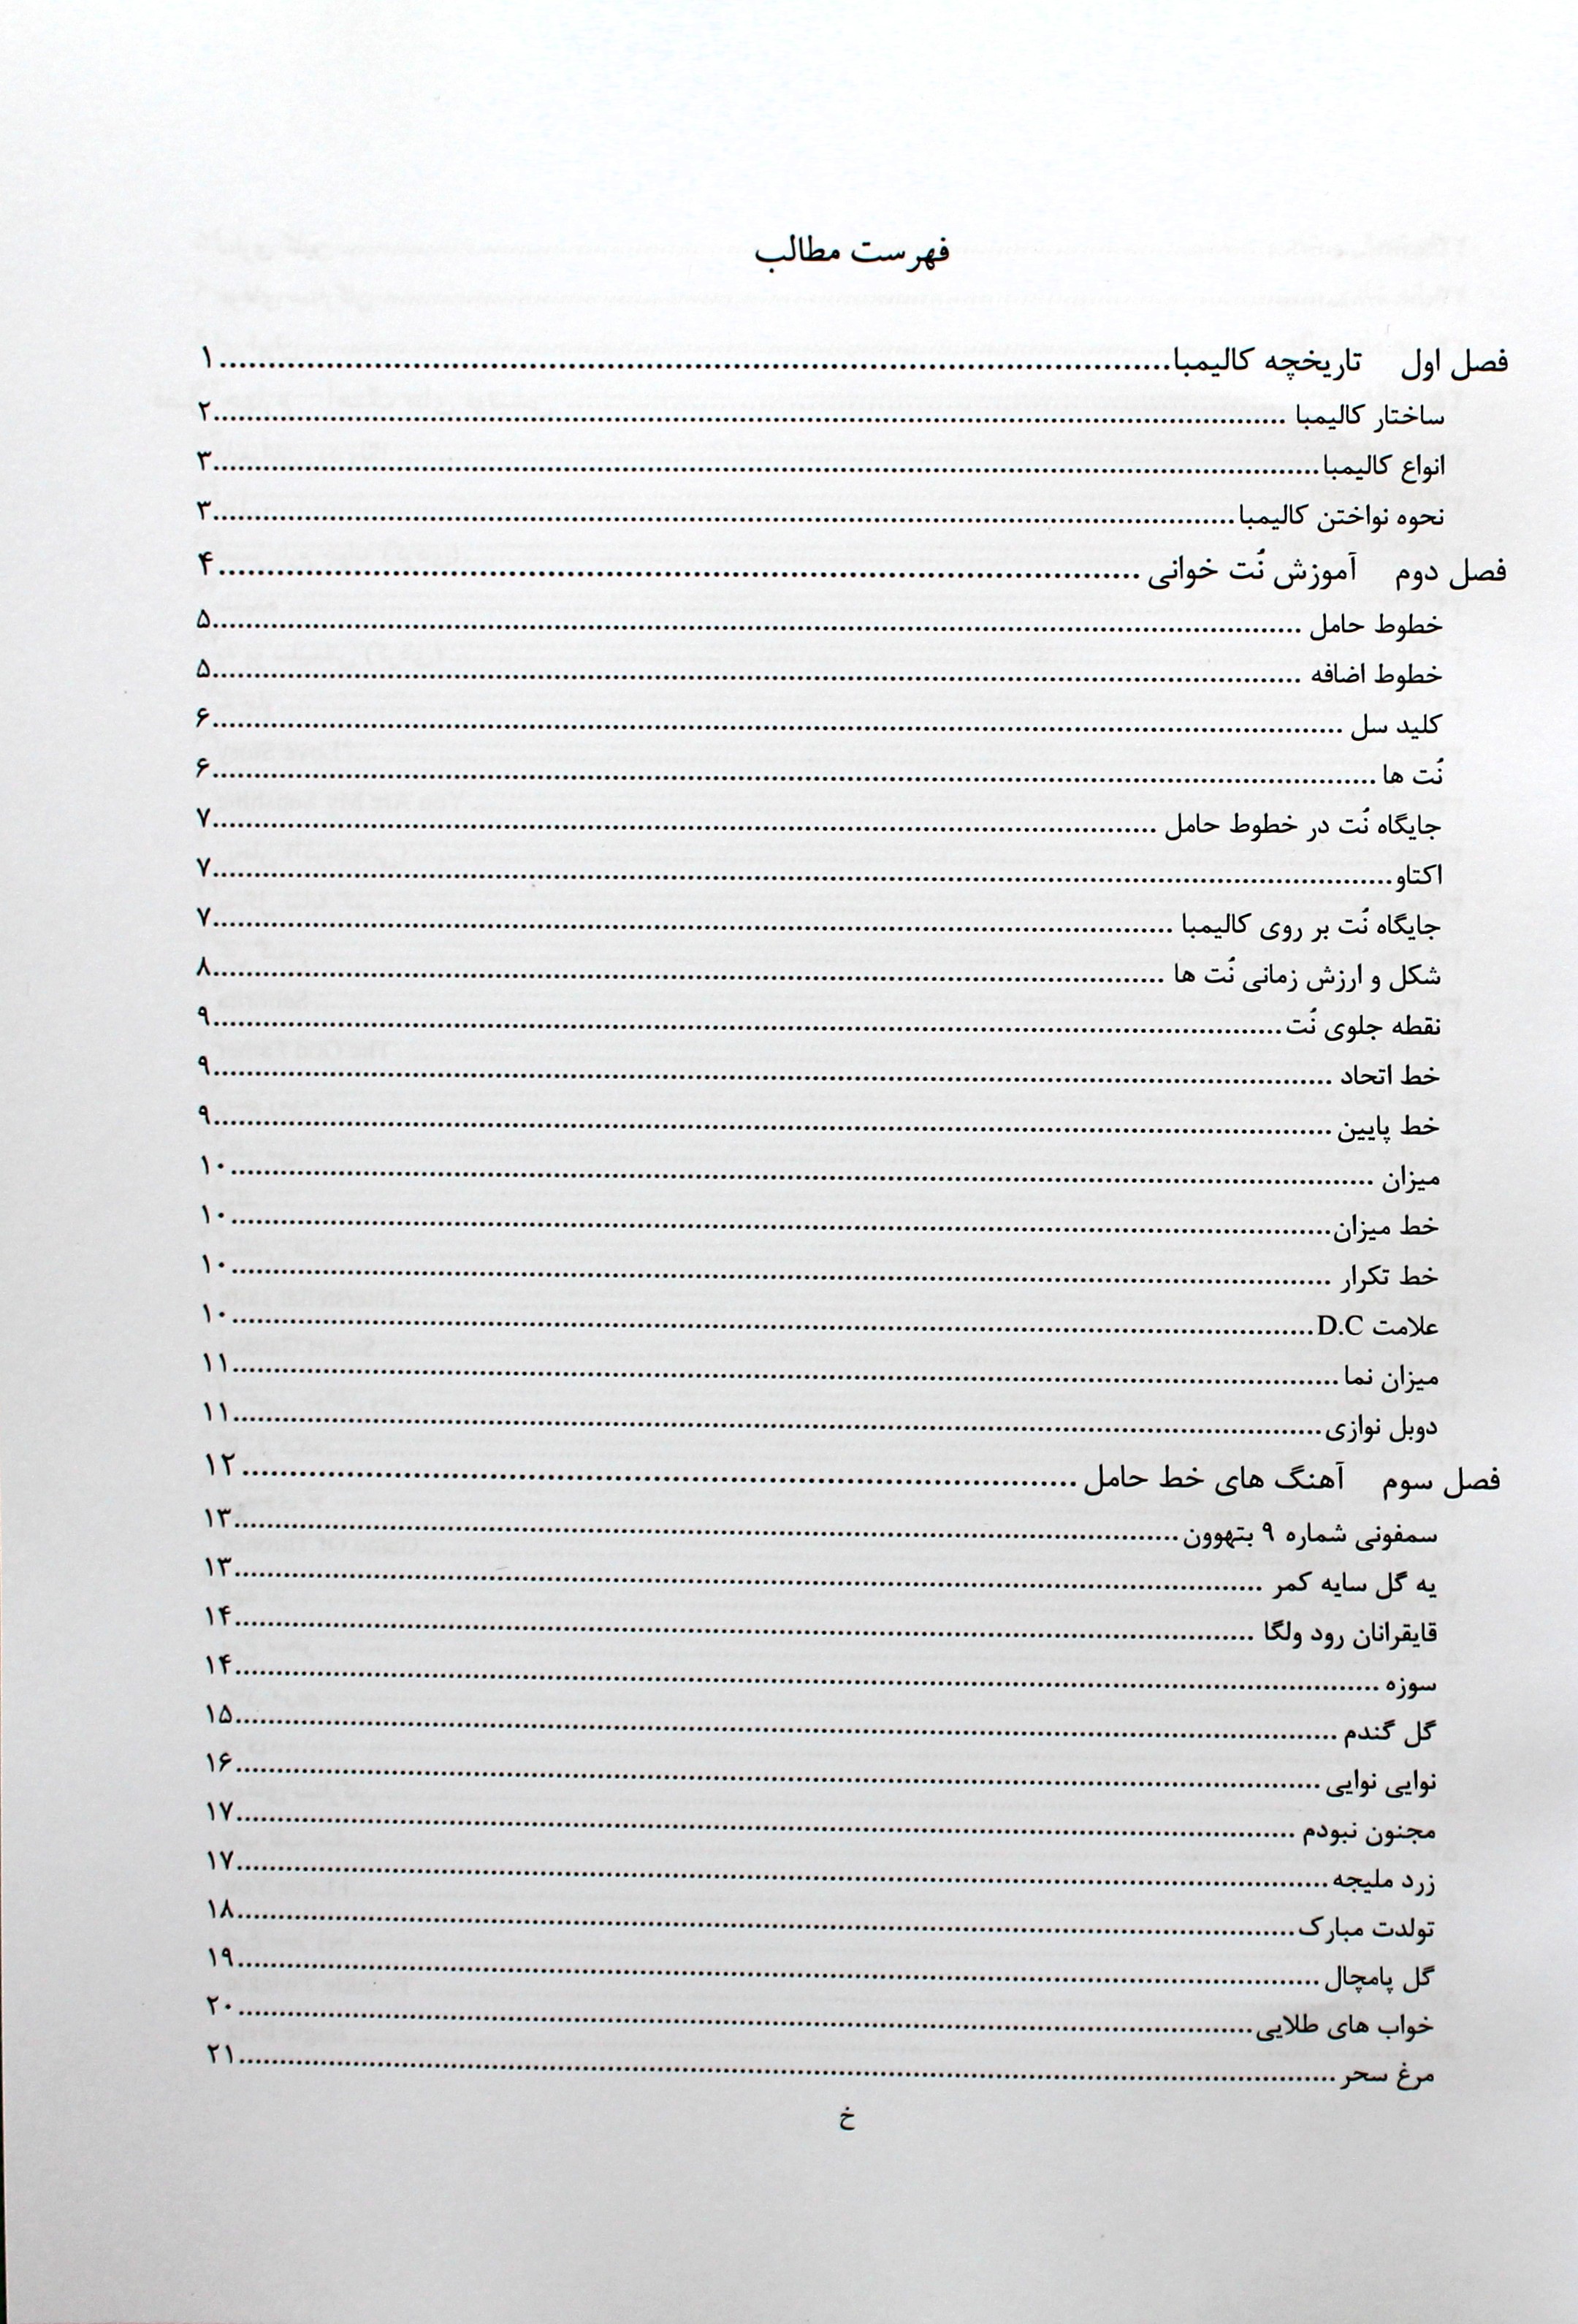 فهرست مطالب
فصل اول    تاریخچه کالیمبا........................................۱
ساختار کالیمبا ........................................۲
انواع کالیمبا........................................۳
نحوه نواختن کالیمبا........................................۳
فصل دوم    آموزش نُت خوانی ........................................۴
خطوط حامل ........................................۵
خطوط اضافه ........................................۵
کلید سل ........................................۶
نُت ها........................................۶
جایگاه نُت در خطوط حامل ........................................۷
اکتاو........................................۷
جایگاه نُت بر روی کالیمبا ........................................۷
شکل و ارزش زمانی نُت ها ........................................۸
نقطه جلوی نُت........................................۹
خط اتحاد ........................................۹
خط پایین........................................۹
میزان ........................................۱۰
خط میزان........................................۱۰
خط تکرار ........................................۱۰
علامت D.C........................................۱۰
میزان نما........................................۱۱
دوبل نوازی........................................۱۱
فصل سوم    آهنگ های خط حامل ........................................۱۲
سمفونی شماره ۹ بتهوون........................................۱۳
یه گل سایه کمر ........................................۱۳
قایقرانان رود ولگا ........................................۱۴
سوزه ........................................۱۴
گل گندم ........................................۱۵
نوایی نوایی ........................................۱۶
مجنون نبودم ........................................۱۷
زرد ملیجه........................................۱۷
تولدت مبارک........................................۱۸
گل پامچال........................................۱۹
خواب های طلایی........................................۲۰
مرغ سحر........................................۲۱
خ